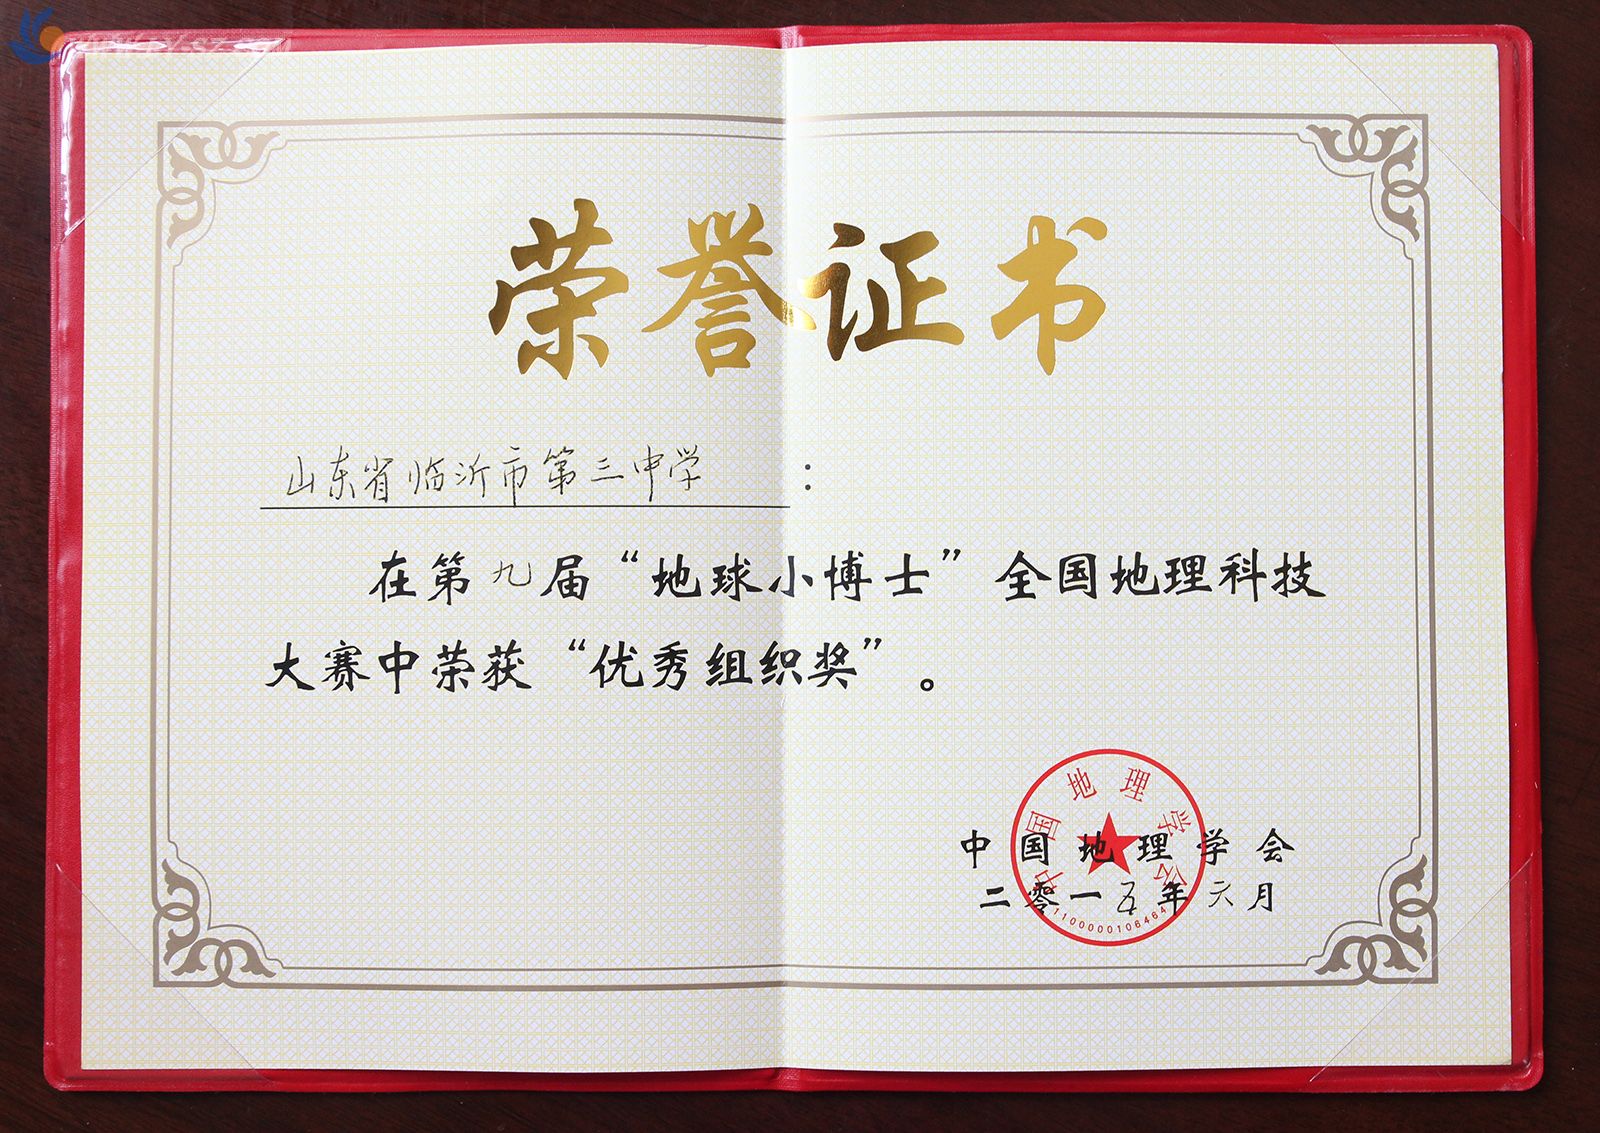 荣誉证书
山东省临沂市第三中学：
在第九届“地球小博士”全国地理科技
大赛中荣获“优秀组织奖”。
中国地理学会
二零一五年六月
中国地理学会